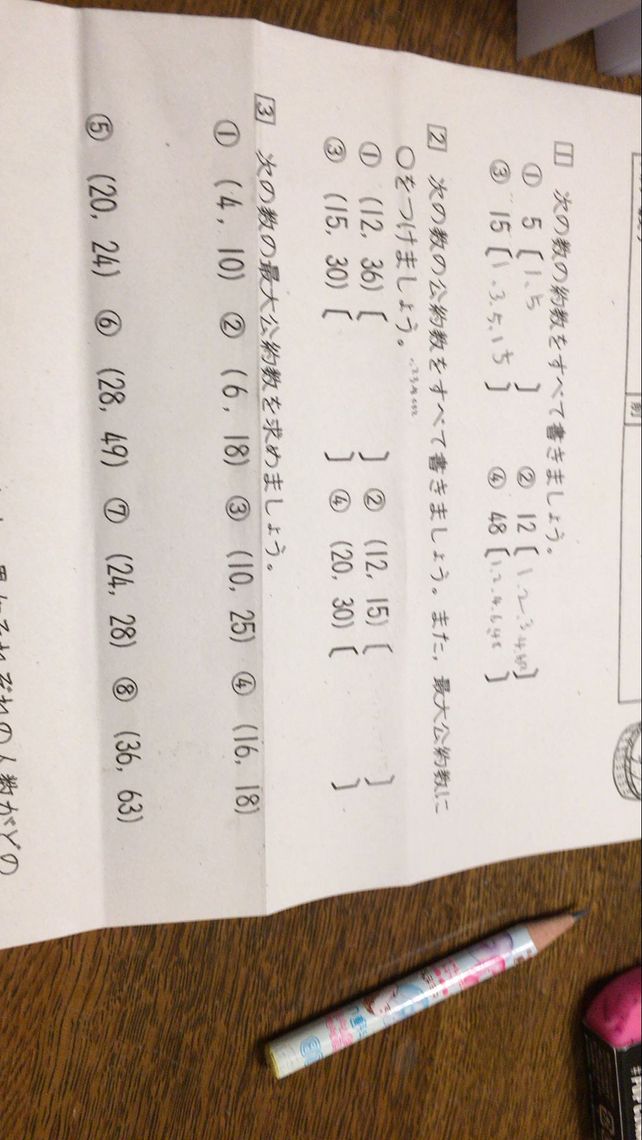 1 次の数の約数をすべて書きましょう。
① 5 [1、5 ] ② 12 [1.2.3.4.6.12]
③ 15 [1.3.5.15 ] ④ 48 [1.2.4.6
2 次の数の公約数をすべて書きましょう。また，最大公約数に
○をつけましょう。
① (12, 36) [ ] ② (12, 15) [ ]
③ (15, 30) [ ] ④ (20, 30) [ ]
3 次の数の最大公約数を求めましょう。
① (4, 10) ② (6, 18) ③ (10, 25) ④ (16, 18)
⑤ (20, 24) ⑥ (28, 49) ⑦ (24, 28) ⑧ (36, 63)
それぞれの人数がどの